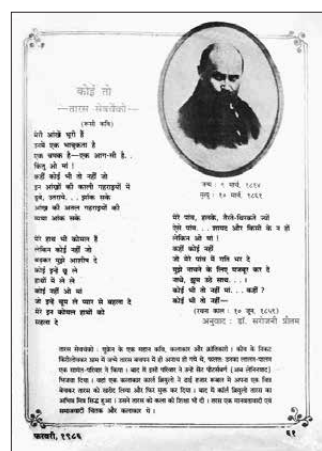 कोई तो
—तारस सेवचेंको—
(रूसी कवि)
मेरी आंखें भूरी हैं
उनमें एक भावुकता है
एक चमक है—एक आग-सी है. .
किंतु ओ मां !
कहीं कोई भी तो नहीं जो
इन आंखों की काली गहराइयों में
डूबे, उतराये. . . झांक सके
आंखों की अतल गहराइयों की
भाषा आंक सके
मेरे हाथ भी कोमल हैं
लेकिन कोई नहीं जो
बढ़कर मुझे आशीष दे
कोई इन्हें छू ले
हाथों में ले ले
कोई नहीं ओ मां
जो इन्हें चूम ले प्यार से सहला दे
मेरे इन कोमल हाथों को
सहला दे
जन्म : ९ मार्च, १८१४
मृत्यु : १० मार्च, १८६१
मेरे पांव, हलके, तैरते-थिरकते ज्यों
ऐसे पांव. . . शायद और किसी के न हों
लेकिन ओ मां !
कहीं कोई नहीं
जो मेरे पांव में गति भर दे
मुझे नाचने के लिए मजबूर कर दे
नाचे, झूम उठे साथ. . . ।
कोई भी तो नहीं मां. . . कहीं ?
कोई भी तो नहीं—
(रचना काल : १० जून, १८५९)
अनुवाद : डॉ. सरोजनी प्रीतम
तारस सेवचेंको : यूक्रेन के एक महान कवि, कलाकार और क्रांतिकारी । कीव के निकट
ग्राम में जन्मे तारस बचपन में ही अनाथ हो गये थे, फलतः उनका लालन-पालन
एक सामंत-परिवार ने किया । बाद में इसी परिवार ने उन्हें सेंट पीटर्सबर्ग (अब लेनिनग्राद)
भिजवा दिया । वहां एक कलाकार कार्ल ब्रियुलो ने ढाई हजार रूबल में अपना एक चित्र
बेचकर तारस को खरीद लिया और फिर मुक्त कर दिया । बाद में कार्ल ब्रियुलो तारस का
अभिन्न मित्र सिद्ध हुआ । उसने तारस को कला की शिक्षा भी दी । तारस एक मानवतावादी एवं
समाजवादी चिंतक और कलाकार थे ।
फरवरी, १९८६
६१